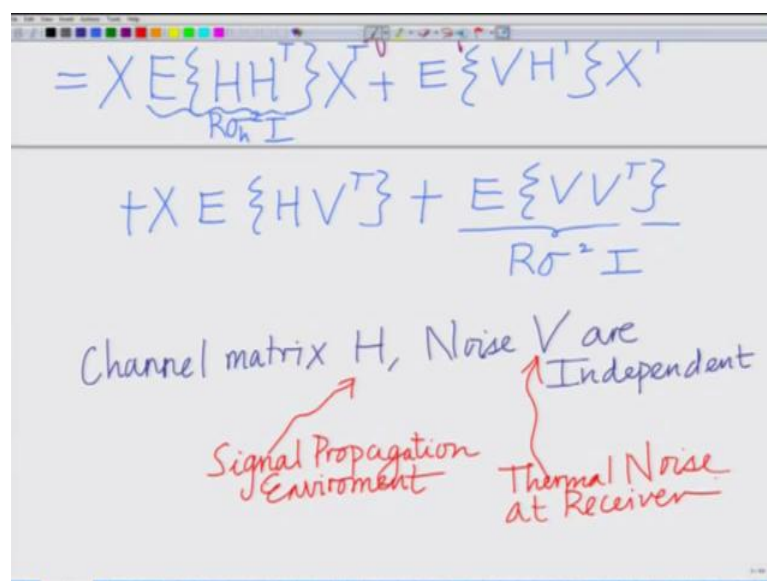 = X E{HH^T}X^T + E{VH^T}X^T
Rσ_h^2 I
+X E{HV^T} + E{VV^T}
Rσ^2 I
Channel matrix H, Noise V are
Independent
Signal Propagation
Enviroment
Thermal Noise
at Receiver